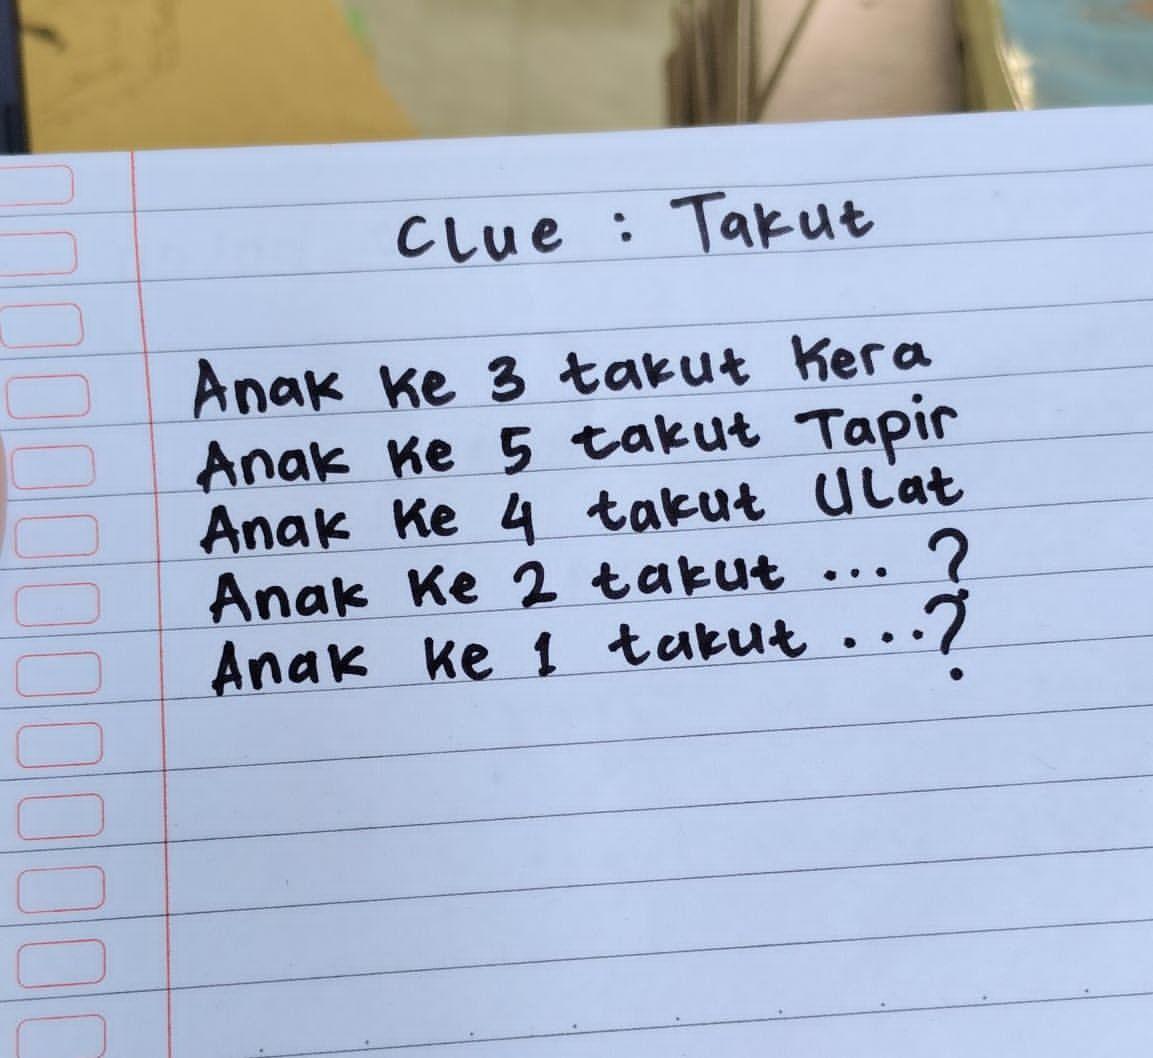 Clue : Takut
Anak ke 3 takut Kera
Anak ke 5 takut Tapir
Anak ke 4 takut Ulat
Anak ke 2 takut ... ?
Anak ke 1 takut ...?